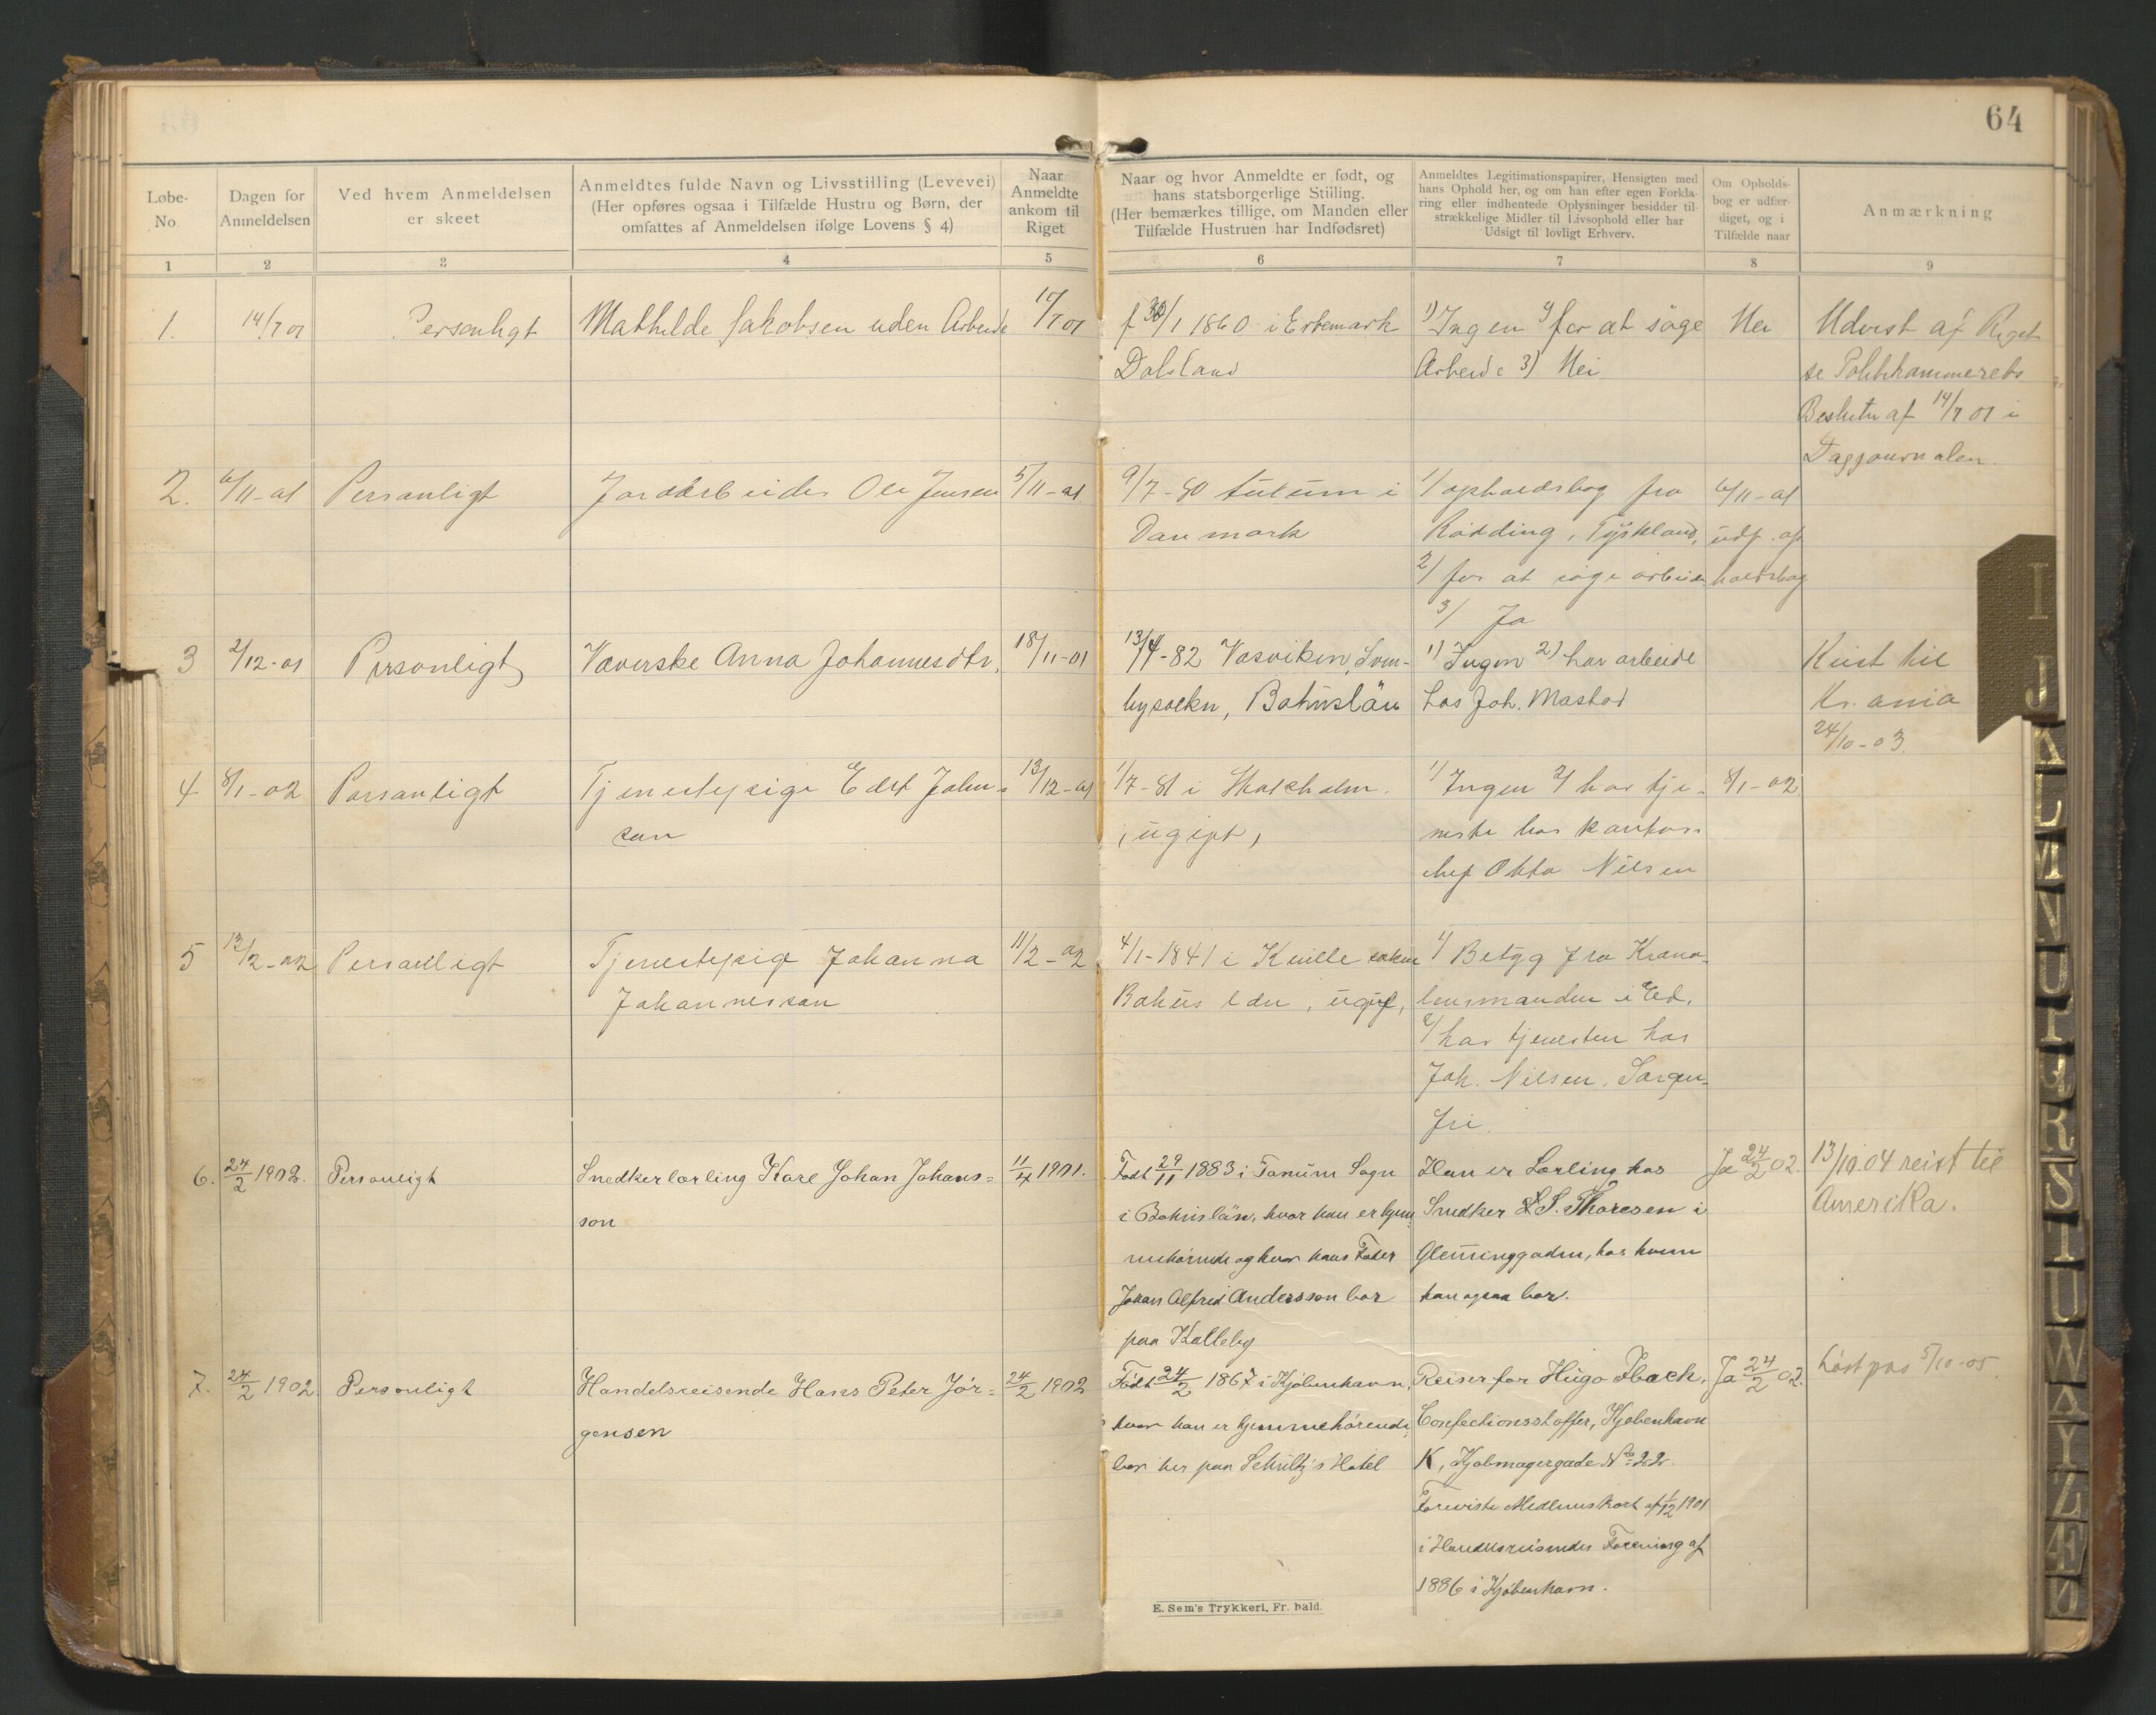 64
Løbe-
No.
Dagen for
Anmeldelsen
Ved hvem Anmeldelsen
er skeet
Anmeldtes fulde Navn og Livsstilling (Levevei)
(Her opføres ogsaa i Tilfælde Hustru og Børn, der
omfattes af Anmeldelsen ifølge Lovens § 4)
Naar
Anmeldte
ankom til
Riget
Naar og hvor Anmeldte er født, og
hans statsborgerlige Stilling.
(Her bemærkes tillige, om Manden eller
Tilfælde Hustruen har Indfødsret)
Anmeldtes Legitimationspapirer, Hensigten med
hans Ophold her, og om han efter egen Forkla-
ring eller indhentede Oplysninger besidder til-
strækkelige Midler til Livsophold eller har
Udsigt til lovligt Erhverv.
Om Opholds-
bog er udfær-
diget, og i
Tilfælde naar
Anmærkning
1 2 3 4 5 6 7 8 9
1.
14/7 01
Personligt
Mathilde Jakobsen uden Arbeide
/7 01
f 30/1 1860 i Ertemark
Dalsland
1) Ingen 2) for at søge
Arbeide 3) Nei
Nei
Udvist af Riget
se Politikammerets
Beslutn af 14/7 01 i
Dagjournalen.
2.
6/11-01
Personligt
Jordarbeider Ole Jensen
5/11-01
9/7-80 i
Danmark
1/ opholdsbog fra
Rödding, Tyskland,
2/ for at søge arbeide
3/ Ja
6/11-01
udf. op
holdsbog
3
2/12-01
Personligt
Væverske Anna Johannesdtr.
18/11-01
13/4-82 Vasviken, Svен-
bysockn, Bahuslän
1) Ingen 2) har arbeide
hos Joh. Mastad
Reist til
Kr.ania
24/10-03.
4
8/1-02
Personligt
Tjenestepige Edit John-
son
13/12-01
1/7-81 i Stockholm.
, ugift,
1/ Ingen 2/ har tje-
neste hos kontor-
chef Otto Nilsen
8/1-02.
5
12/2-02
Personligt
Tjenestepige Johanna
Johannesson
11/2-02
4/1-1841 i Kville sokn
Bohus län, ugift,
1/ Betyg fra Krono-
lensmanden i Ed,
2/ har tjenesten hos
Joh. Nilsen, Sorgen-
fri.
6.
24/2 1902.
Personligt
Snedkerlærling Karl Johan Johans=
son
11/4 1901.
Født 29/11 1883 i Tanum Sogn
i Bohuslän, hvor han er hjem
mehørende og hvor hans Fader
Johan Alfred Andersson bor
paa Kalleby
Han er Lærling hos
Snedker L. S. Thoresen i
Glemminggaden, hos hvem
han ogsaa bor.
Ja 24/2 02.
13/10.04 reist til
Amerika.
7.
24/2 1902
Personligt
Handelsreisende Hans Peter Jør=
gensen
24/2 1902
Født 24/2 1867 i Kjøbenhavn,
hvor han er hjemmehørende,
bor her paa Schultz's Hotel
Reiser for Hugo Ibach,
Confectionsstoffer, Kjøbenhavn
K, Kjøbmagergade No 22.
Foreviste Medlemskort af 1/12 1901
i Handelsreisendes Forening af
1886 i Kjøbenhavn.
Ja 24/2 02.
Løst pas 5/10-05
E. Sem's Trykkeri, Fr. hald.
I
J
L
M
N
R
S
T
U
W
Y
Z
Æ
Ø